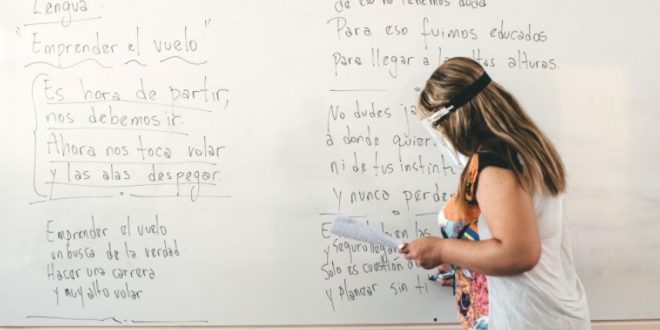 Lengua
"Emprender el vuelo"
Es hora de partir,
nos debemos ir.
Ahora nos toca volar
y las alas despegar.
Emprender el vuelo
en busca de la verdad
Hacer una carrera
y muy alto volar
de eso no tenemos duda
Para eso fuimos educados
para llegar a las altas alturas.
No dudes
a donde quier
ni de tus instint
y nunca perde
bien las
y seguro llegar
Solo es cuestión
y planear sin